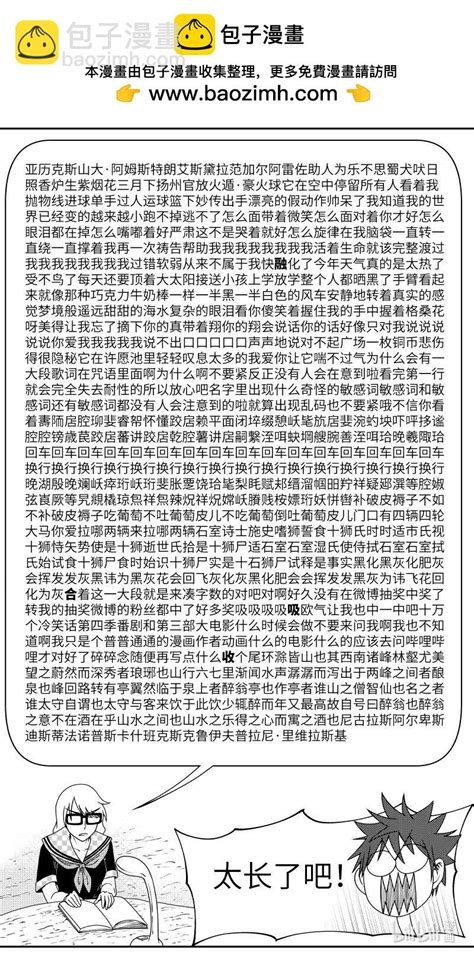 包子漫畫
包子漫畫
本漫畫由包子漫畫收集整理，更多免費漫畫請訪問
www.baozimh.com
亚历克斯山大·阿姆斯特朗艾斯黛拉范加尔阿雷佐助人为乐不思蜀犬吠日
照香炉生紫烟花三月下扬州官放火遁·豪火球它在空中停留所有人看着我
抛物线进球单手过人运球篮下妙传出手漂亮的假动作帅呆了我知道我的世
界已经变的越来越小跑不掉逃不了怎么面带着微笑怎么面对着你才好怎么
眼泪都在掉怎么嘴嘟着好严肃这不是哭着就好怎么旋律在我脑袋一直转一
直绕一直撑着我再一次祷告帮助我我我我我我我我活着生命就该完整渡过
我我我我我我我我过错软弱从来不属于我快融化了今年天气真的是太热了
受不鸟了每天还要顶着大太阳接送小孩上学放学整个人都晒黑了手臂看起
来就像那种巧克力牛奶棒一样一半黑一半白色的风车安静地转着真实的感
觉梦境般遥远甜甜的海水复杂的眼泪看你傻笑着握住我的手中握着格桑花
呀美得让我忘了摘下你的真带着翔你的翔会说话你的话好像只对我说说说
说说你爱我我我我我说不出口口口口口声声地说对不起广场一枚铜币悲伤
得很隐秘它在许愿池里轻轻叹息太多的我爱你让它喘不过气为什么会有一
大段歌词在咒语里面啊为什么啊不要紧反正没有人会在意到啦看完第一行
就会完全失去耐性的所以放心吧名字里出现什么奇怪的敏感词敏感词和敏
感词还有敏感词都没有人会注意到的啦就算出现乱码也不要紧哦不信你看
回车回车回车回车回车回车回车回车回车回车回车回车回车回车回车回车
换行换行换行换行换行换行换行换行换行换行换行换行换行换行换行换行
不补破皮褥子吃葡萄不吐葡萄皮儿不吃葡萄倒吐葡萄皮儿门口有四辆四轮
大马你爱拉哪两辆来拉哪两辆石室诗士施史嗜狮誓食十狮氏时时适市氏视
十狮恃矢势使是十狮逝世氏拾是十狮尸适石室石室湿氏使侍拭石室石室拭
氏始试食十狮尸食时始识十狮尸实是十石狮尸试释是事实黑化黑灰化肥灰
会挥发发灰黑讳为黑灰花会回飞灰化灰黑化肥会会挥发发黑灰为讳飞花回
化为灰合着这一大段就是来凑字数的对吧对啊好久没有在微博抽奖中奖了
转我的抽奖微博的粉丝都中了好多奖吸吸吸吸吸欧气让我也中一中吧十万
个冷笑话第四季番剧和第三部大电影什么时候会做不要来问我啊我也不知
道啊我只是个普普通通的漫画作者动画什么的电影什么的应该去问哔哩哔
哩才对好了碎碎念随便再写点什么收个尾环滁皆山也其西南诸峰林壑尤美
望之蔚然而深秀者琅琊也山行六七里渐闻水声潺潺而泻出于两峰之间者酿
泉也峰回路转有亭翼然临于泉上者醉翁亭也作亭者谁山之僧智仙也名之者
谁太守自谓也太守与客来饮于此饮少辄醉而年又最高故自号曰醉翁也醉翁之
意不在酒在乎山水之间也山水之乐得之心而寓之酒也尼古拉斯阿尔卑斯
迪斯蒂法诺普斯卡什班克斯克鲁伊夫普拉尼·里维拉斯基
太长了吧！